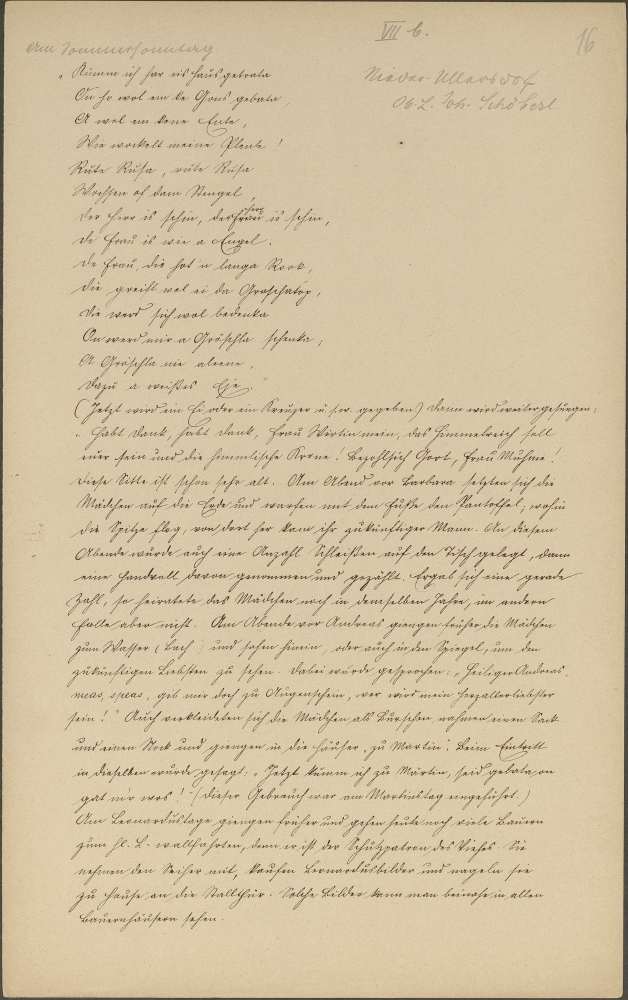 VII b.
16
Am Sommersonntag
Nieder Ullersdorf
Ob. L. Joh. Schöberl
„Kumm ich har eis Haus getrata
On ho wol em ke Gons gebata,
A wol em kene Ente,
Wie wockelt meine Plente!
Rute Rusa, rute Rusa
Wochsen of dam Stengel,
Der Herr is schin, der Herr is schin,
de Frau is wie a Engel.
De Frau, die hot 'n langa Rook,
Die greift wol ei da Groschatop,
Die werd sich wol bedenka
On werd mir a Gröschla schenka,
A Gröschla nie aleene,
Dazu a weißes Eje."
(Jetzt wird ein Ei oder ein Kreuzer u.s.w. gegeben) dann wird weiter gesungen:
„Habt Dank, habt Dank, Frau Wirtin mein, das Himmelreich soll
euer sein und die himmlische Krone! Bezohlsich Gort, Frau Muhme!
Diese Sitte ist schon sehr alt. Am Abend vor Barbara setzten sich die
Mädchen auf die Erde und warfen mit dem Fuße den Pantoffel, wohin
die Spitze flog, von dort her kam ihr zukünftiger Mann. An diesem
Abende wurde auch eine Anzahl Schleißen auf den Tisch gelegt, dann
eine Handvoll davon genommen und gezählt. Ergab sich eine gerade
Zahl, so heiratete das Mädchen noch in demselben Jahre, im andern
Falle aber nicht. Am Abende vor Andreas giengen früher die Mädchen
zum Wasser (Bach) und sahen hinein, oder auch in den Spiegel, um den
zukünftigen Liebsten zu sehen. Dabei wurde gesprochen: „Heiliger Andreas,
meas, speas, geb mir doch zu Augenschein, wer wird mein Herzallerliebster
sein!" Auch verkleideten sich die Mädchen als Burschen nahmen einen Sack
und einen Stock und giengen in die Häuser „zu Martin". Beim Eintritt
in dieselben wurde gesagt: „Jetzt kumm ich zu Martin, seid gebata, on
gat mir wos!" (Dieser Gebrauch war am Martinstag eingeführt.)
Am Leonardustage giengen früher und gehen heute noch viele Bauern
zum hl. L. wallfahrten, denn er ist der Schutzpatron des Viehes. Sie
nehmen den Seiher mit, kaufen Leonardusbilder und nageln sie
zu Hause an die Stallthür. Solche Bilder kann man beinahe in allen
Bauernhäusern sehen.